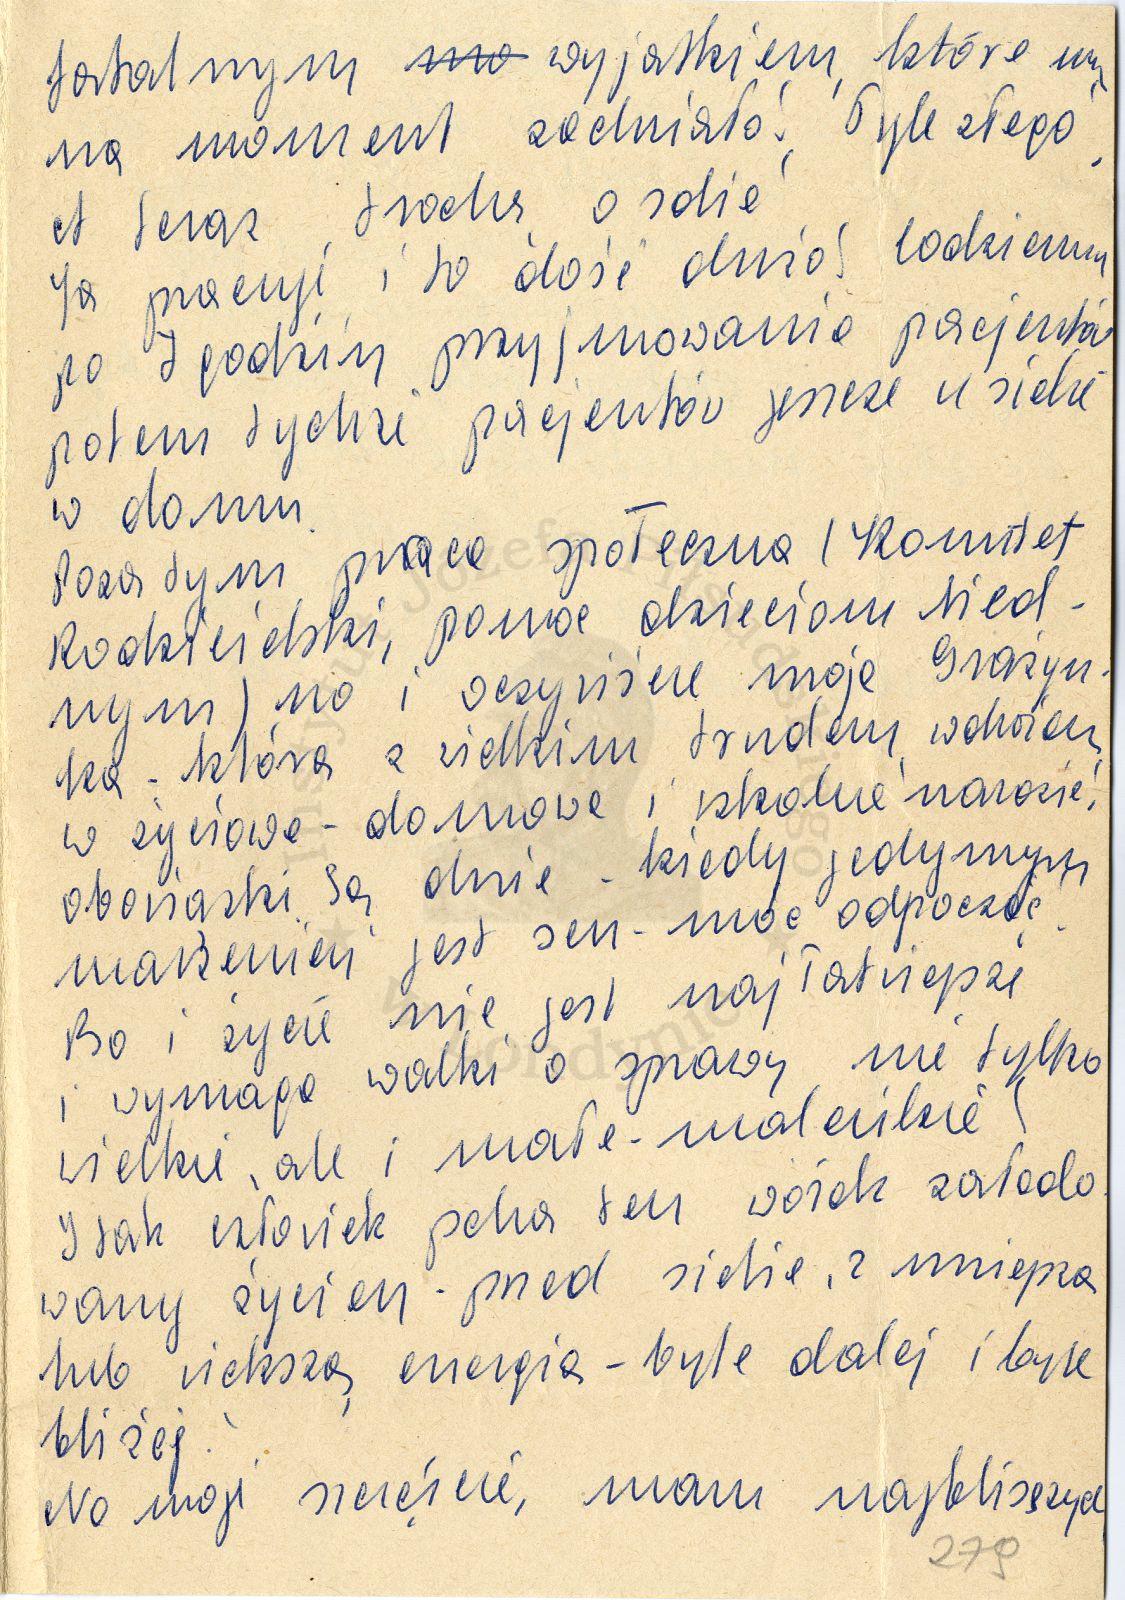 fatalnym ~~mo~~ wyjątkiem, które
na moment zaćmiało! Tyle złego.
A teraz trochę o sobie
Ja pracuję i to dość dużo! Codzienny
po 7 godzin przyjmowania pacjentów
potem tychże pacjentów jeszcze u siebie
w domu.
Poza tym praca społeczna (Komitet
Rodzicielski, pomoc dzieciom bied-
nym) no i oczywiście moja Grażyn-
ka - którą z wielkim trudem wdrażam
w życiowe - domowe i szkolne
obowiązki. Są dnie - kiedy jedynym
marzeniem jest sen - móc odpocząć.
Bo i życie nie jest najłatwiejsze
i wymaga walki o sprawy nie tylko
wielkie, ale i małe - maleńkie!
I tak człowiek pcha ten wózek załado-
wany życiem - przed siebie, z mniejszą
lub większą energią - byle dalej i byle
bliżej!
No moje szczęście, mam najbliższych
279
Instytut Józefa Piłsudskiego
w Londynie